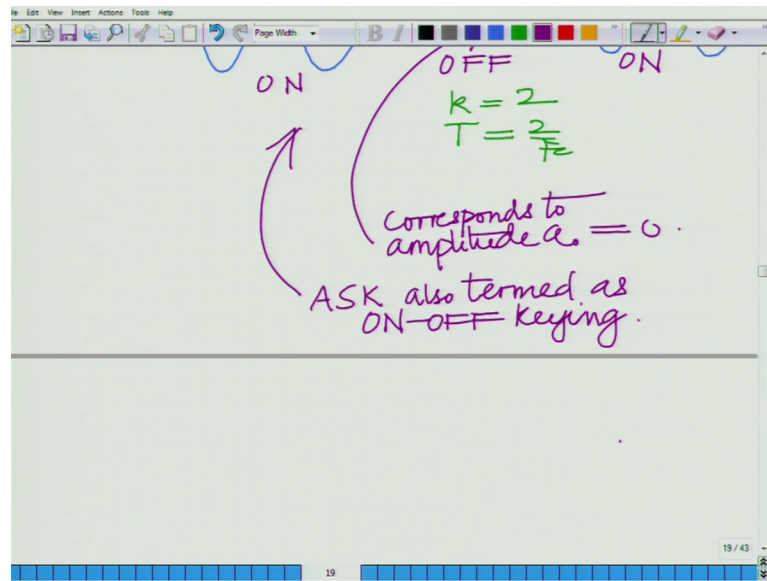 File Edit View Insert Actions Tools Help
Page Width
B I
ON
OFF
ON
k = 2
T = 2/Fc
corresponds to
amplitude a₀ = 0.
ASK also termed as
ON-OFF keying.
19 / 43
19